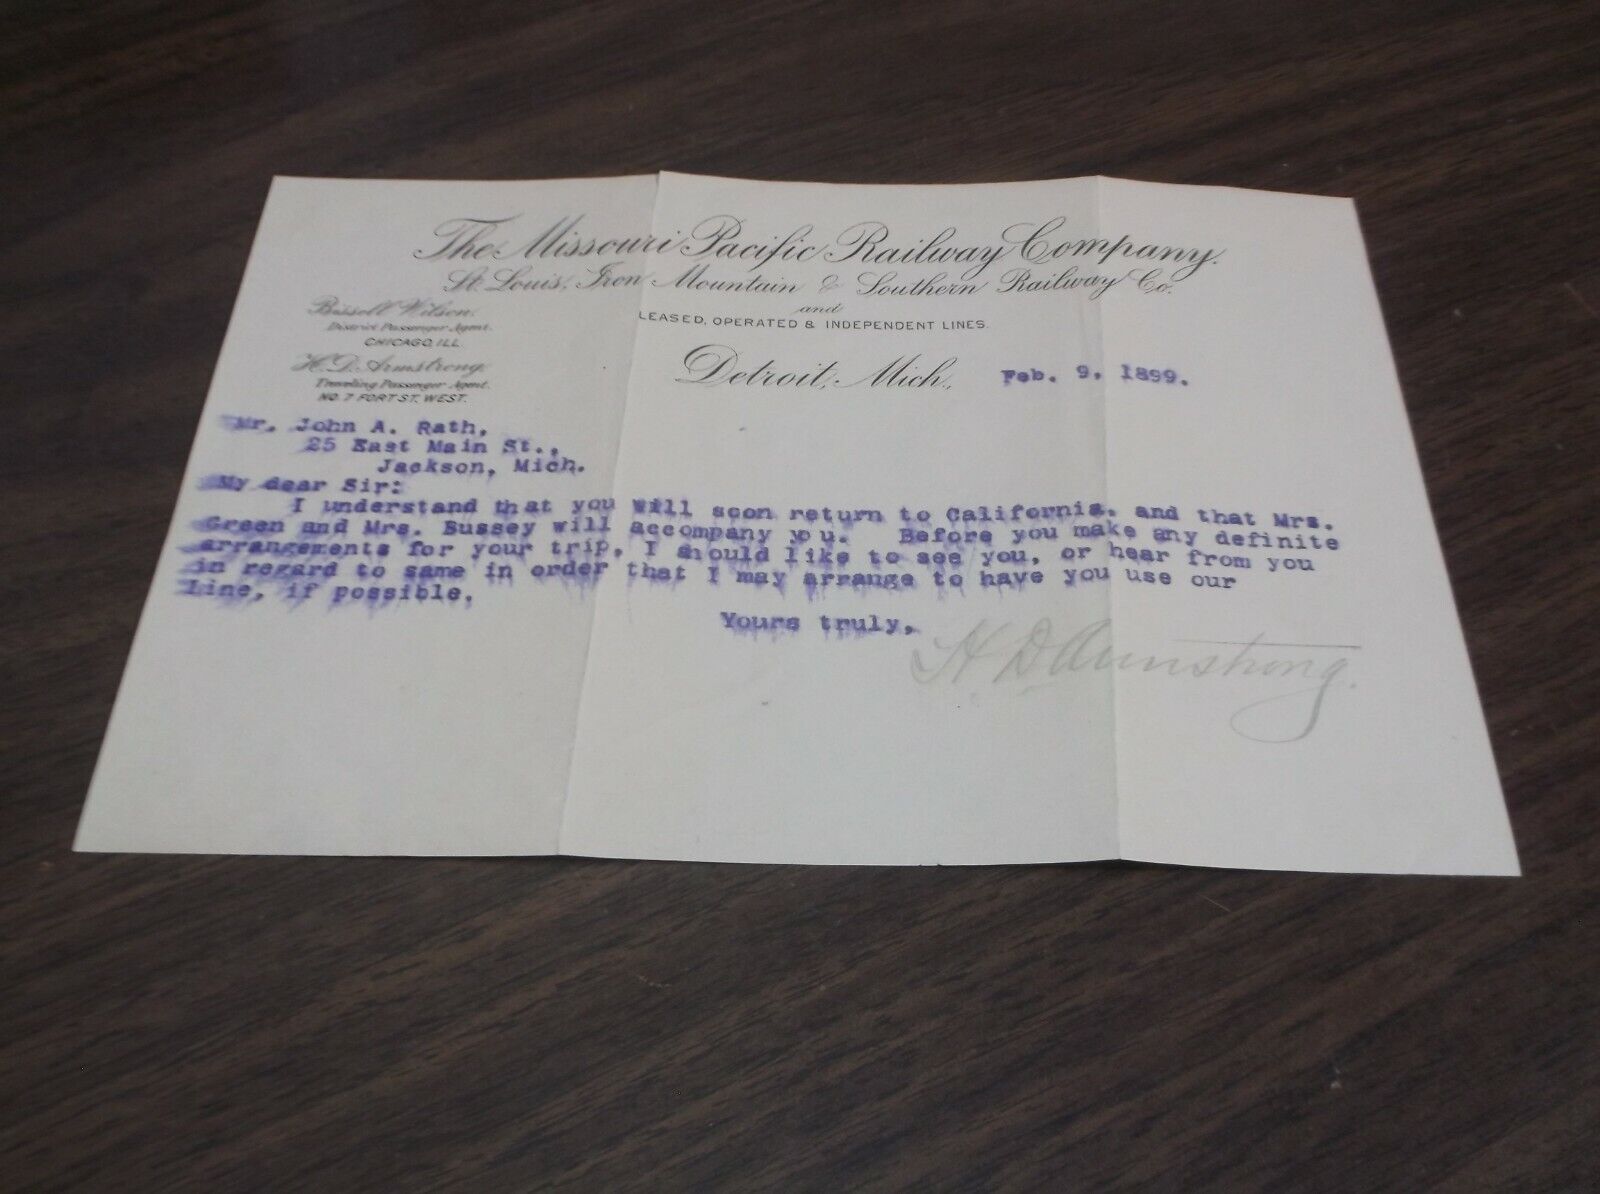 The Missouri Pacific Railway Company.
St. Louis, Iron Mountain & Southern Railway Co.
and
LEASED, OPERATED & INDEPENDENT LINES.
Bissell Wilson.
District Passenger Agent.
CHICAGO, ILL.
H. D. Armstrong.
Traveling Passenger Agent.
NO. 7 FORT ST. WEST.
Detroit, Mich., Feb. 9, 1899.
Mr. John A. Rath,
25 East Main St.,
Jackson, Mich.
My dear Sir:
I understand that you will soon return to California. and that Mrs.
Green and Mrs. Bussey will accompany you. Before you make any definite
arrangements for your trip, I should like to see you, or hear from you
in regard to same in order that I may arrange to have you use our
Line, if possible.
Yours truly,
H D Armstrong.